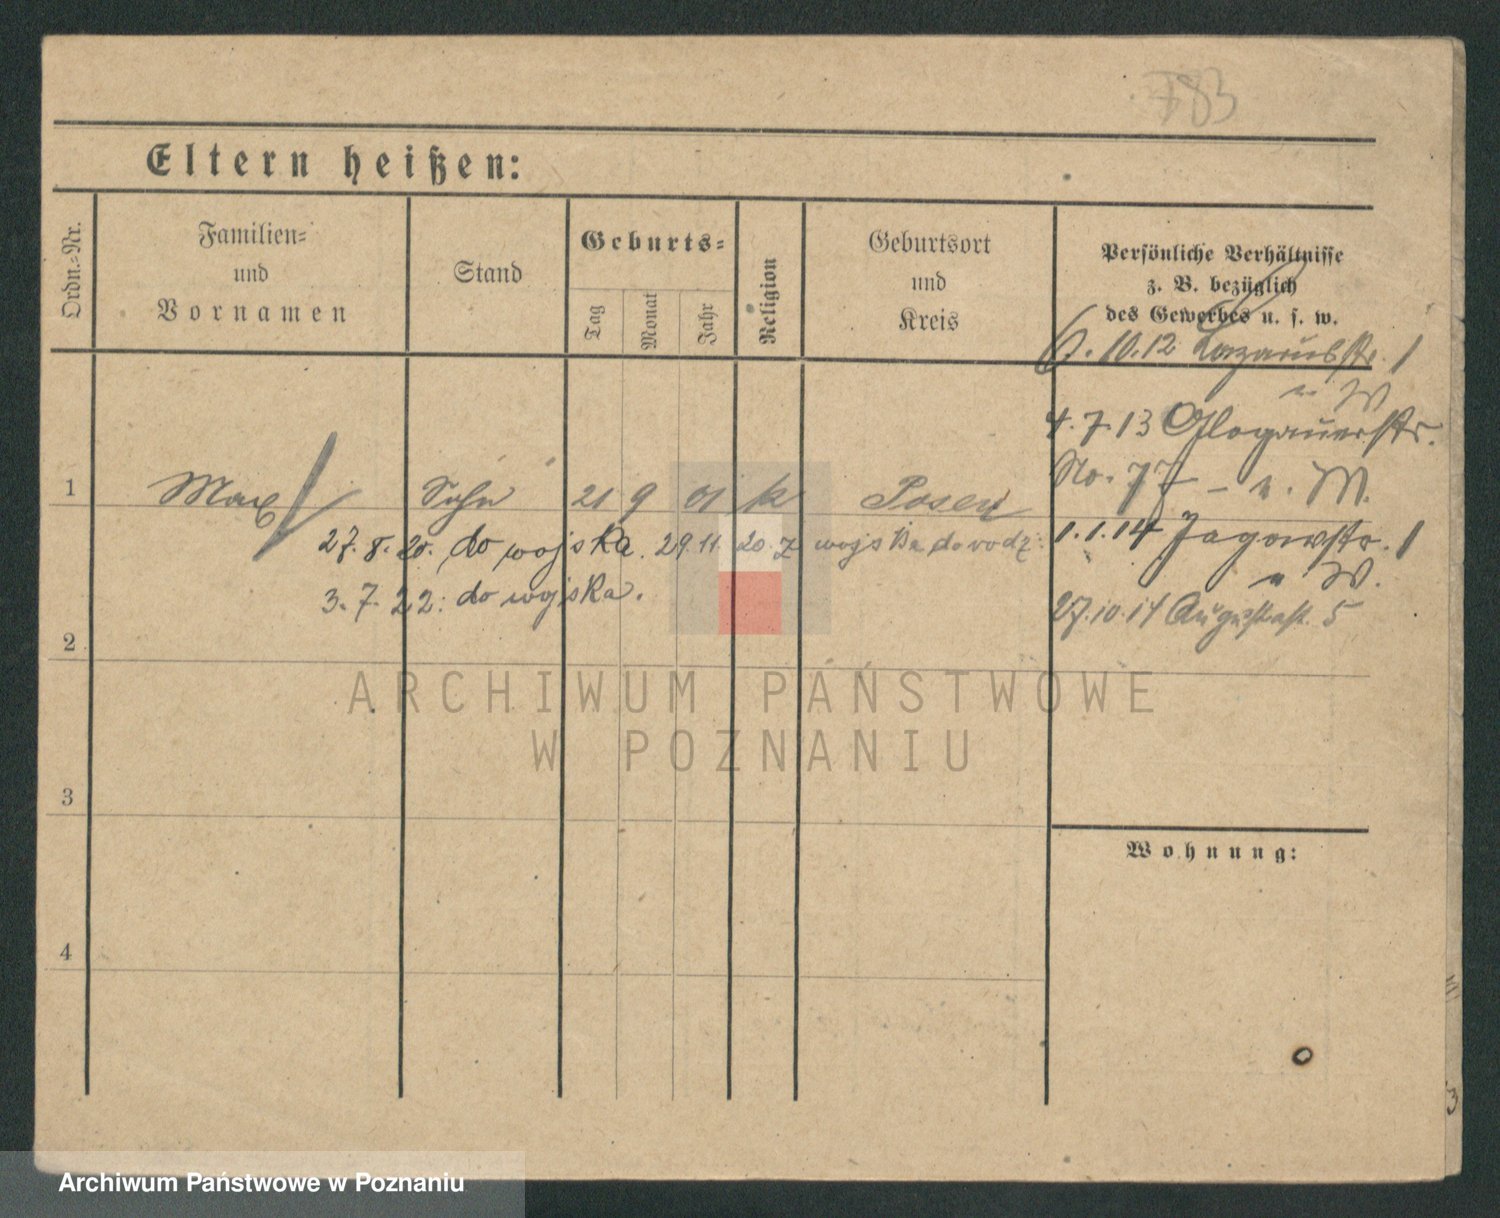 783
Eltern heißen:
Ordn.-Nr.
Familien-
und
Vornamen
Stand
Geburts-
Tag
Monat
Jahr
Religion
Geburtsort
und
Kreis
Persönliche Verhältnisse
z. B. bezüglich
des Gewerbes u. s. w.
6. 10. 12 Lazarusstr. 1
4. 7. 13 Glogauerstr.
No. 77
1 Max Sohn 21 9 01 k Posen
1. 1. 14 Jagowstr. 1
27. 8. 20. do wojska. 29. 11. 20. z wojska do
3. 7. 22: do wojska.
27. 10. 14 Augustastr. 5
2
ARCHIWUM PAŃSTWOWE
W POZNANIU
3
Wohnung:
4
3
Archiwum Państwowe w Poznaniu